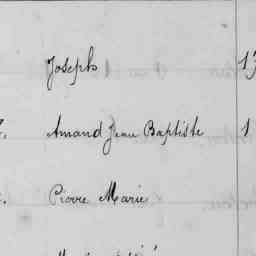 Joseph 1
Amand Jean Baptiste 1
Pierre Marie